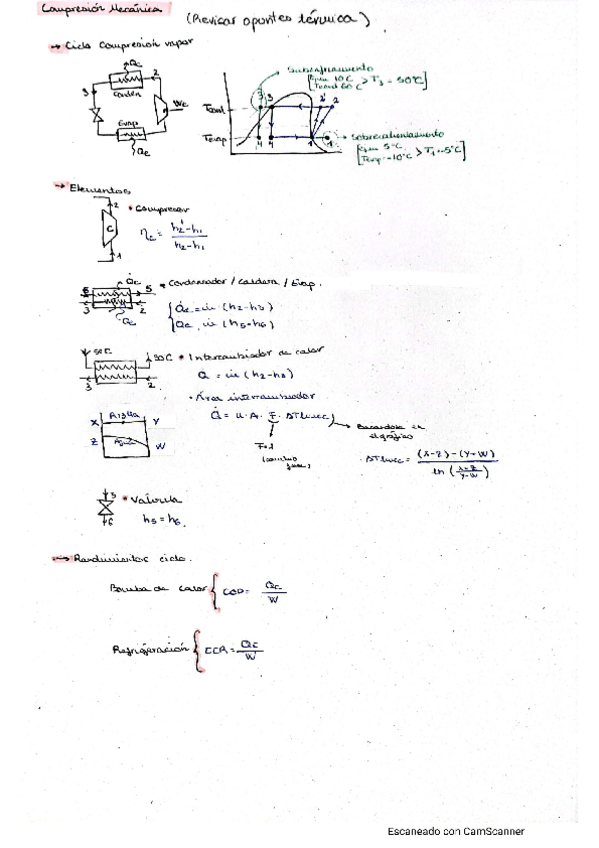 Compresión Mecánica (Revisar apuntes térmica)
→ Ciclo Compresión vapor
Qc
3
2
Conden
Wc
Evap
Qe
Subenfriamiento
10°C > T3 = 50°C]
Tcond 60°C
Tcond
3 2' 2
Tevap
4 4 1
Sobrecalentamiento
5°C
Tevap = -10°C > T1 = -5°C]
→ Elementos
2
• Compresor
C
ηc = h2'-h1 / h2-h1
1
Qc
• Condensador / caldera / Evap.
6 5
3 2
Qe
Qc = ṁ (h2-h3)
Qe = ṁ (h5-h6)
50C
• Intercambiador de calor
3 2
Q = ṁ (h2-h3)
• Área intercambiador
X R134a Y
Z W
Q̇ = U · A · F · ΔTlmcc
F=1
Basandose en el gráfico
ΔTlmcc = (X-Z)-(Y-W) / ln (X-Z / Y-W)
5
• Valvula
6
h5 = h6
→ Rendimientos ciclo.
Bomba de calor { COP = Qc / W
Refrigeración { CCR = Qc / W
Escaneado con CamScanner